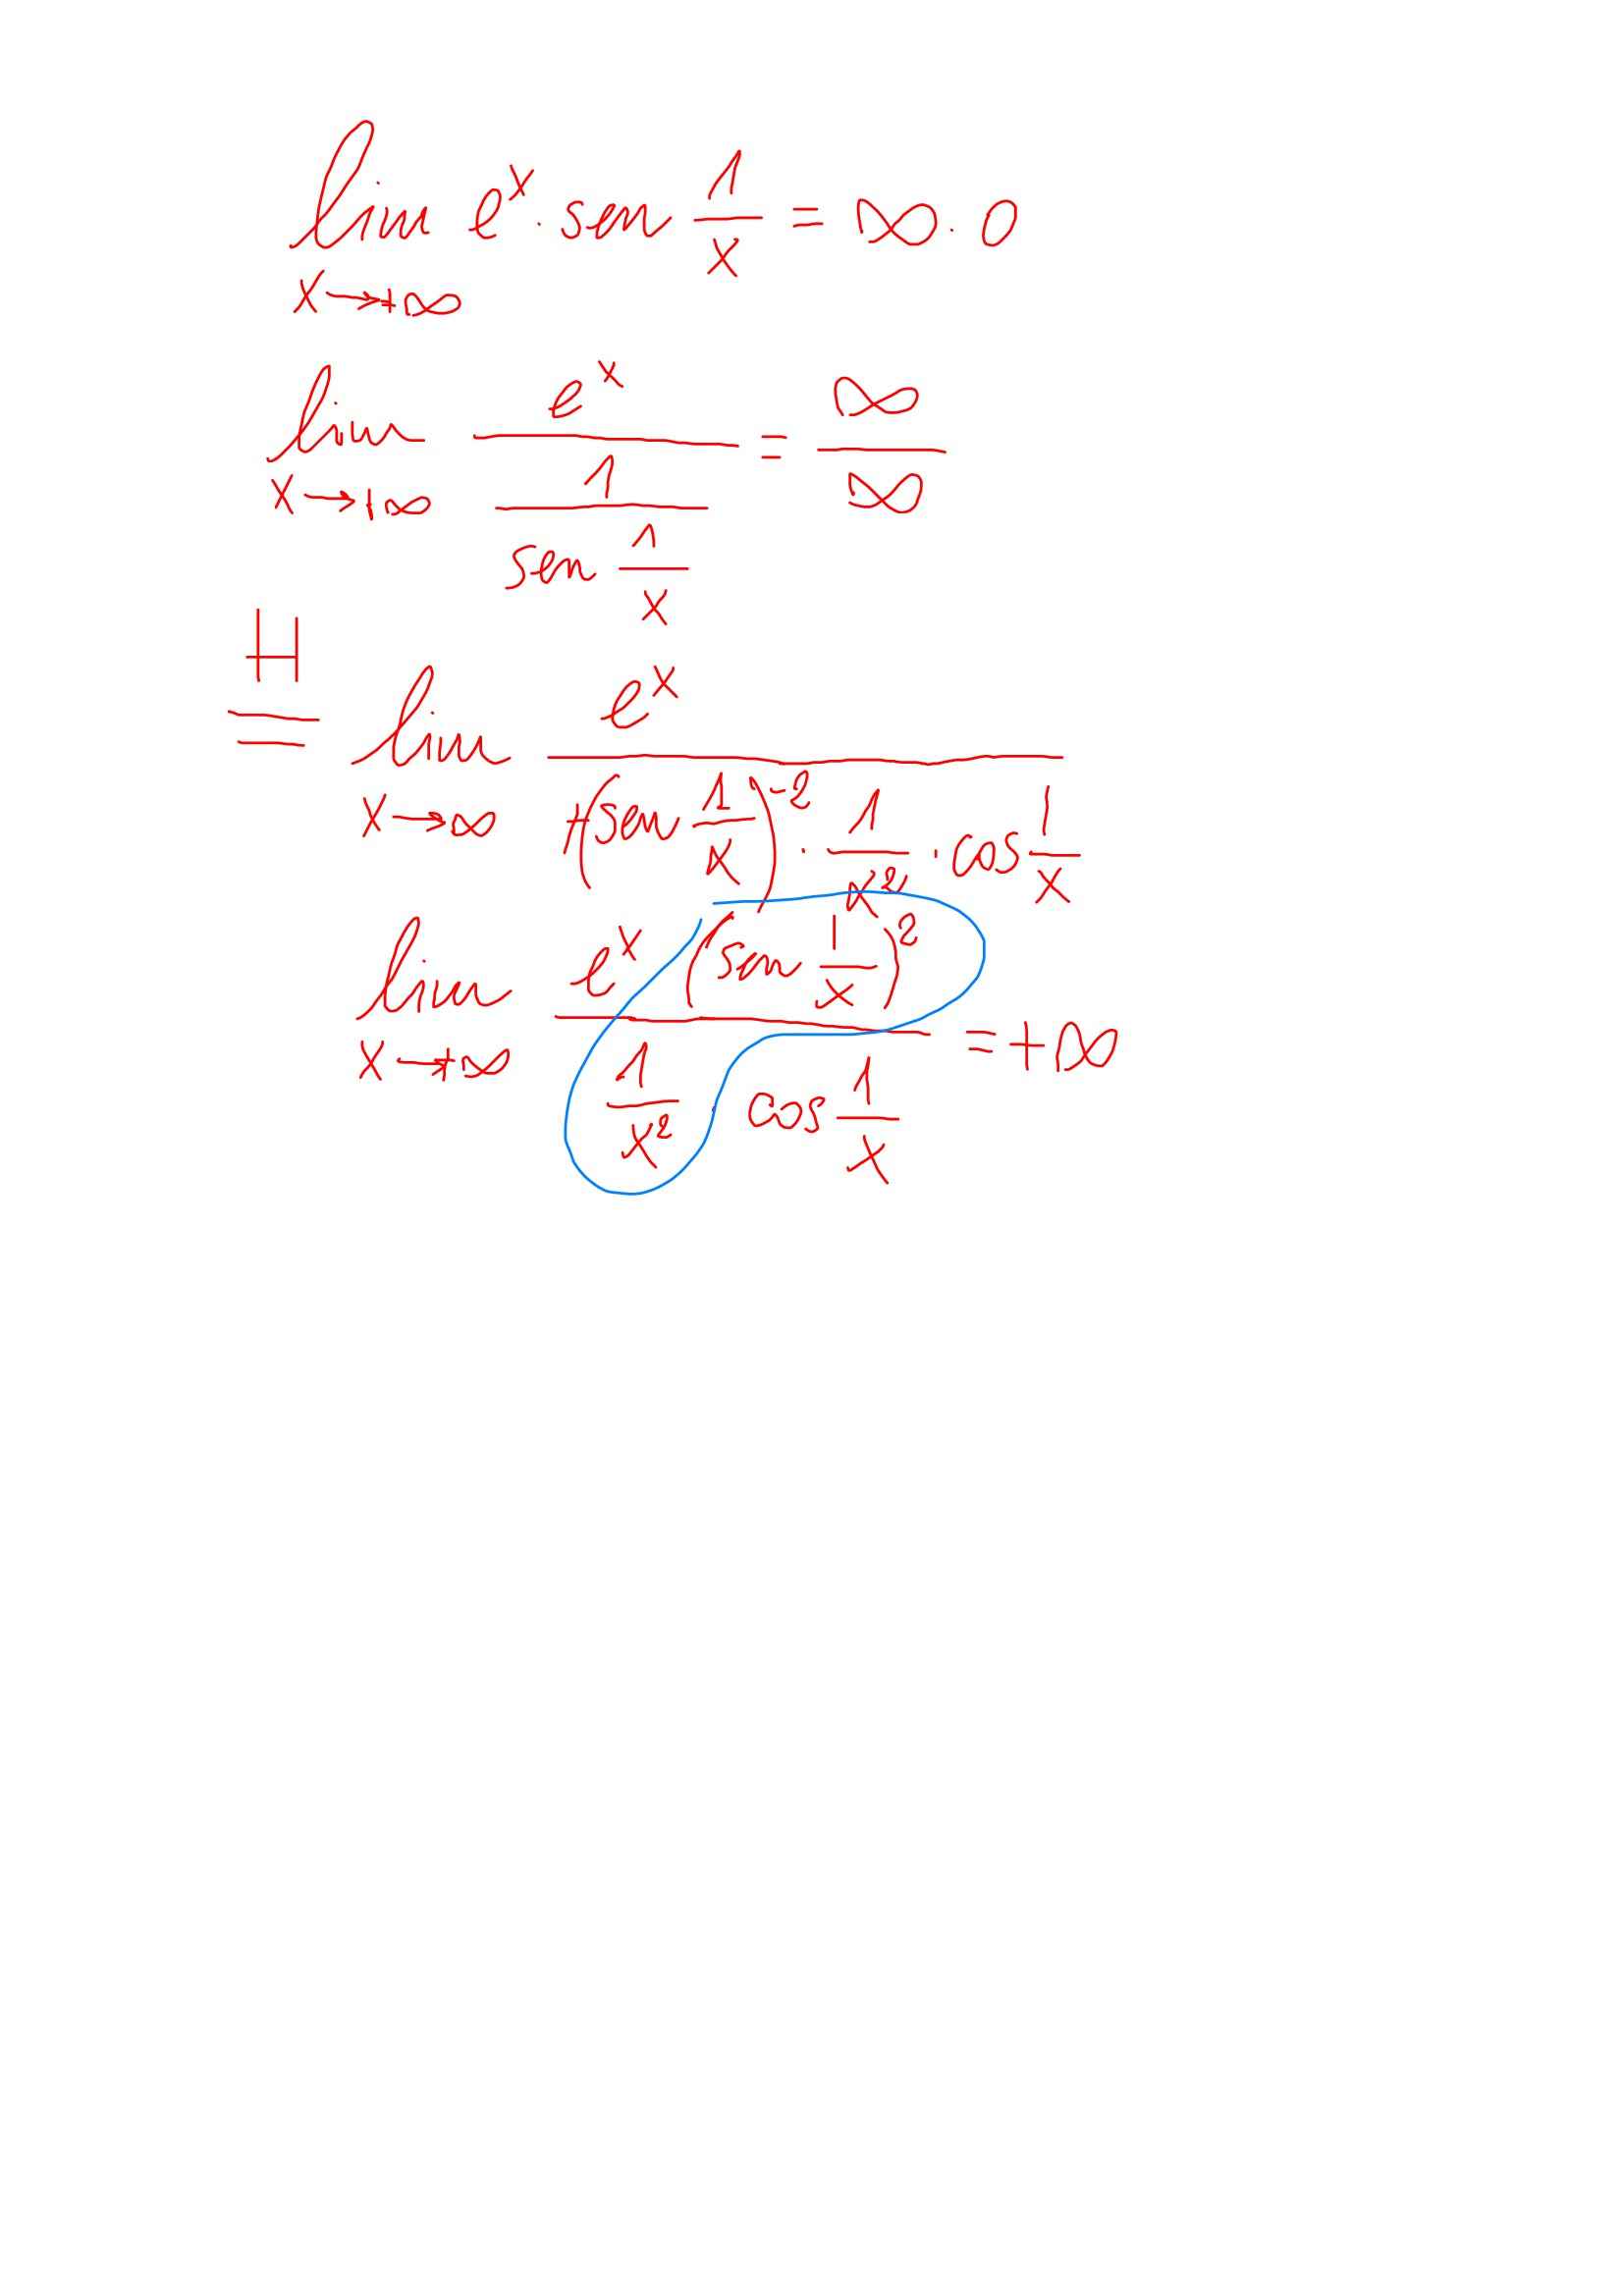 lim x→+∞ e^x · sen 1/x = ∞ · 0
lim x→+∞ e^x / (1 / sen 1/x) = ∞/∞
H
= lim x→∞ e^x / (+(sen 1/x)^-2 · 1/x^2 · cos 1/x)
lim x→+∞ e^x (sen 1/x)^2 / (1/x^2 · cos 1/x) = +∞